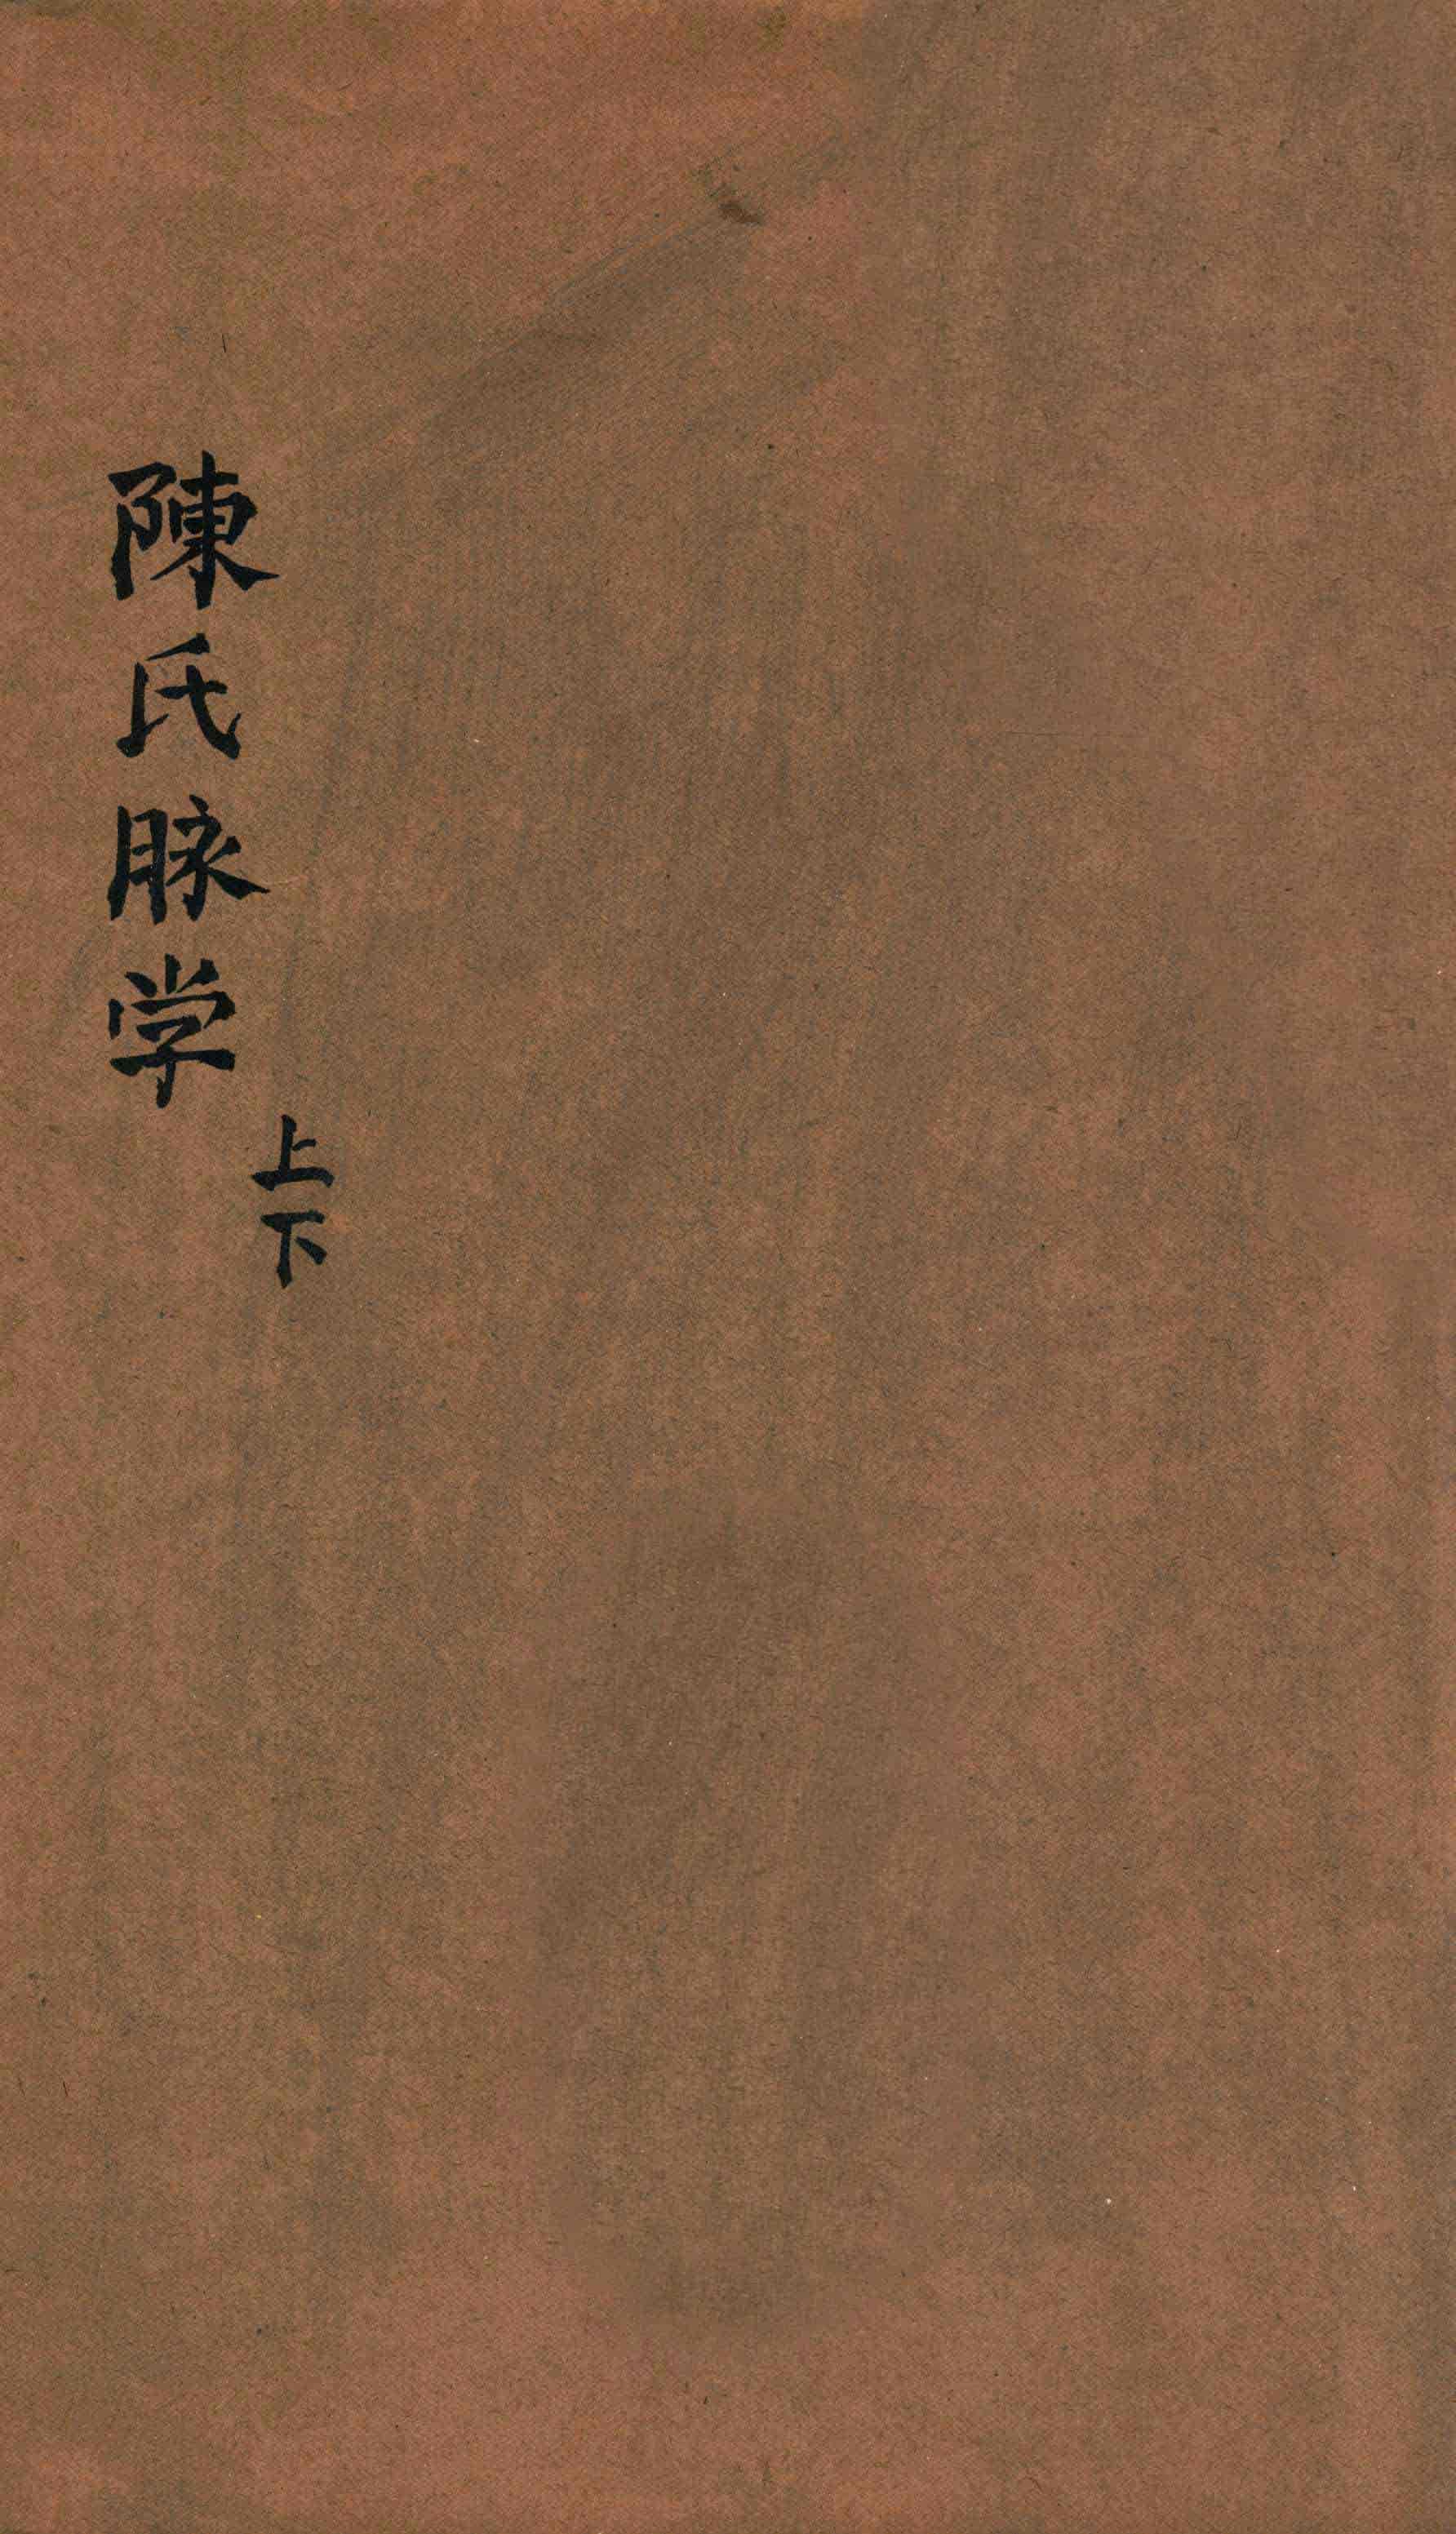 陳氏脉学
上下